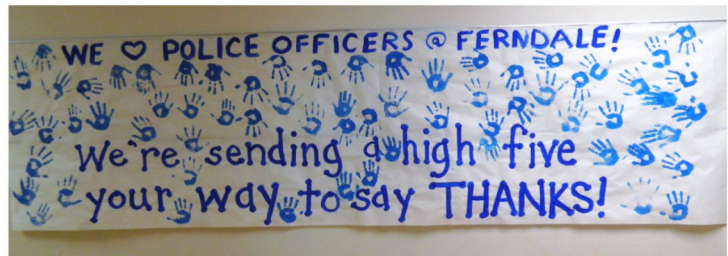 WE ♡ POLICE OFFICERS @ FERNDALE!
We're sending a high five
your way to say THANKS!